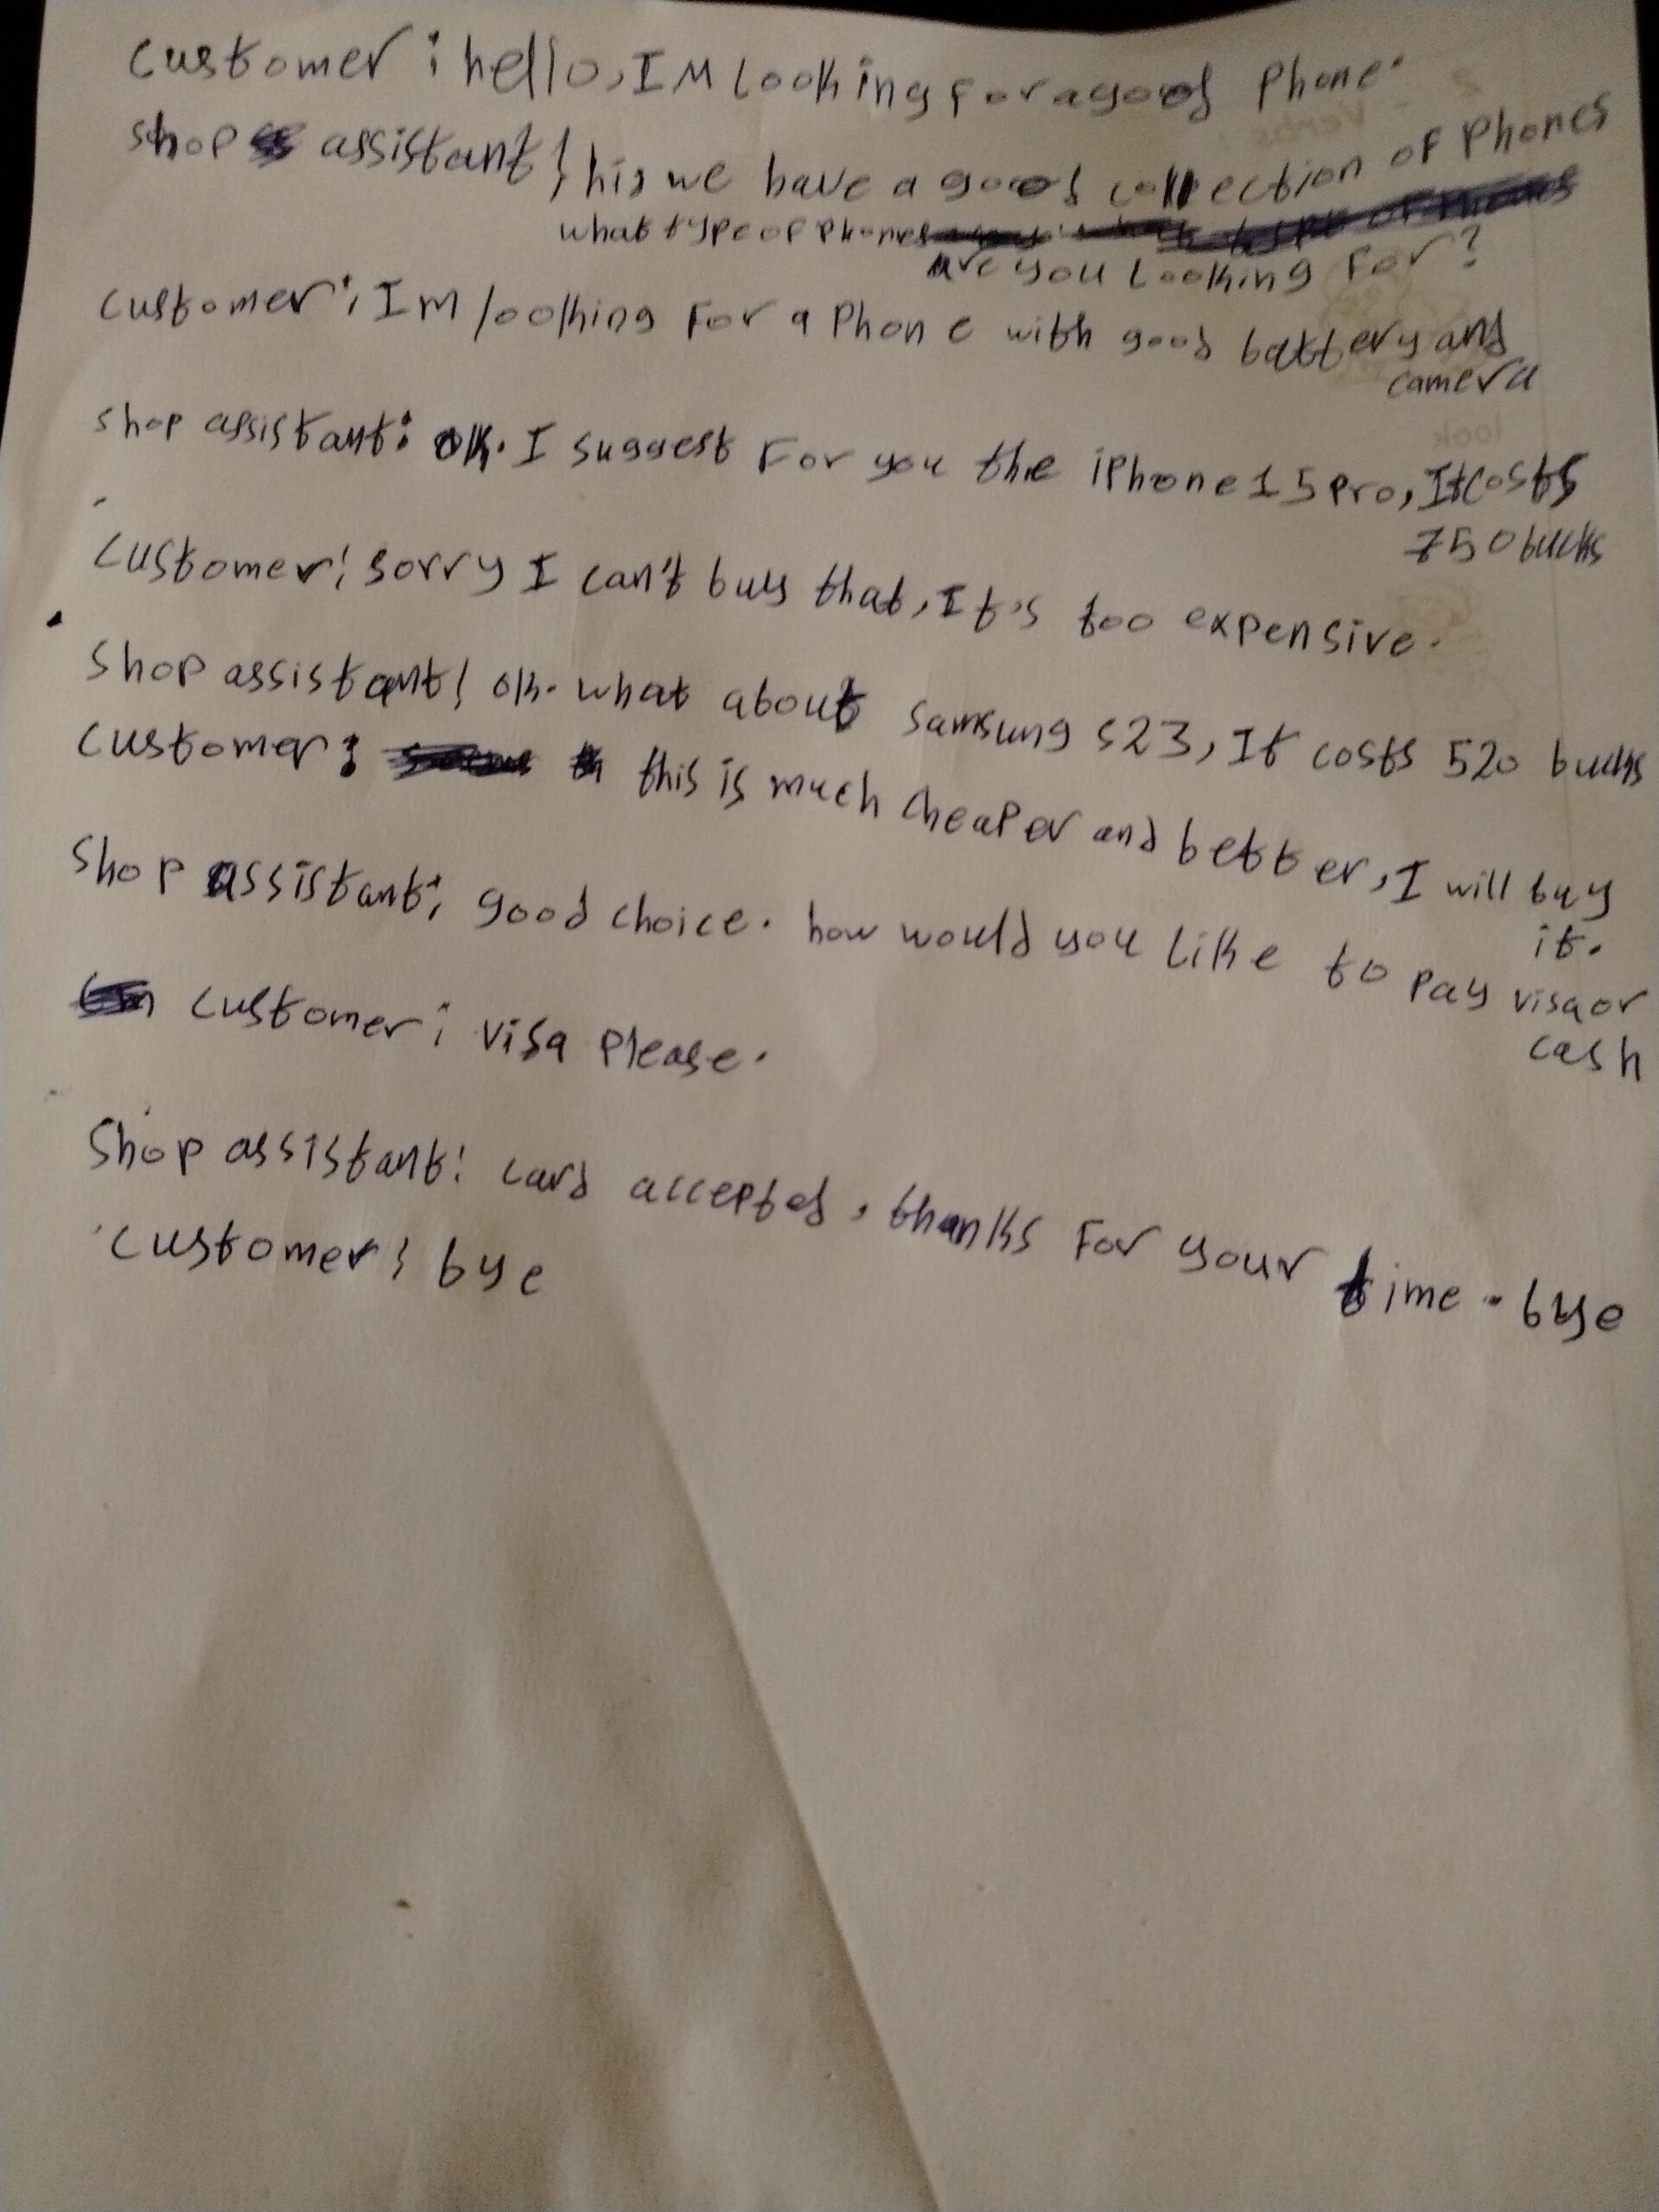 customer: hello, IM looking for a good phone.
shop assistant: hi, we have a good collection of phones
what type of phones
are you looking for?
customer: IM looking for a phone with good battery and
camera
shop assistant: ok. I suggest for you the iphone 15 pro, It costs
750 bucks
customer: sorry I can't buy that, It's too expensive.
shop assistant: ok. what about samsung s23, It costs 520 bucks
customer: this is much cheaper and better, I will buy
it.
shop assistant: good choice. how would you like to pay visa or
cash
customer: visa please.
shop assistant: card accepted, thanks for your time. bye
customer: bye